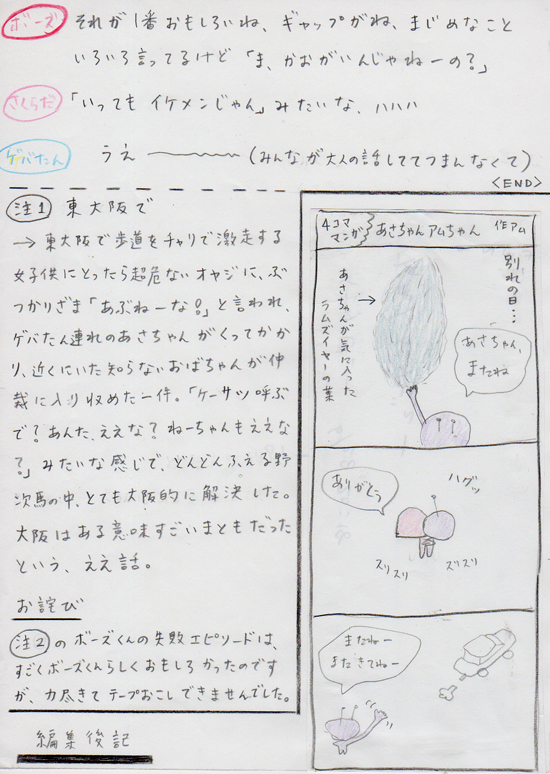 ボーズ それが1番おもしろいね、ギャップがね、まじめなこと
いろいろ言ってるけど「ま、かおがいんじゃねーの?」
さくらだ 「いってもイケメンじゃん」みたいな、ハハハ
ゲバたん うえ〜〜〜〜(みんなが大人の話しててつまんなくて)
<END>
注1 東大阪で
→東大阪で歩道をチャリで激走する
女子供にとったら超危ないオヤジに、ぶ
つかりざま「あぶねーな!」と言われ、
ゲバたん連れのあさちゃんがくってかか
り、近くにいた知らないおばちゃんが仲
裁に入り収めた一件。「ケーサツ呼ぶ
で?あんた、ええな?ねーちゃんもええな
?」みたいな感じで、どんどんふえる野
次馬の中、とても大阪的に解決した。
大阪はある意味すごいまともだった
という、ええ話。
お詫び
注2のボーズくんの失敗エピソードは、
すごくボーズくんらしくおもしろかったのです
が、力尽きてテープおこしできませんでした。
編集後記
4コママンガ
あさちゃんアムちゃん
作アム
別れの日…
あさちゃん、
またね
あさちゃんが気に入った
ラムズイヤーの葉
ハグッ
ありがとう
スリスリ
ズリズリ
またねー
またきてねー